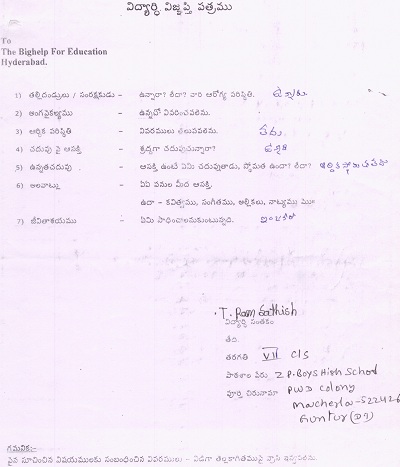 విద్యార్థి విజ్ఞప్తి పత్రము
To
The Bighelp For Education
Hyderabad.
1) తల్లిదండ్రులు / సంరక్షకుడు - ఉన్నారా? లేదా? వారి ఆరోగ్య పరిస్థితి. ఉన్నారు
2) అంగవైకల్యము - ఉన్నచో వివరించవలెను.
3) ఆర్థిక పరిస్థితి - వివరములు తెలుపవలెను. పేద
4) చదువు పై ఆసక్తి - శ్రద్ధగా చదువుచున్నారా?
5) ఉన్నతచదువు - ఆసక్తి ఉంటే ఏమి చదువుతాడు, స్తోమత ఉందా? లేదా?
6) అలవాట్లు - ఏఏ పనుల మీద ఆసక్తి.
ఉదా - కవిత్వము, సంగీతము, అల్లికలు, నాట్యము
7) జీవితాశయము - ఏమి సాధించాలనుకుంటున్నది.
T. Ram Sathish
విద్యార్థి సంతకం
తేది.
తరగతి VII Cls
పాఠశాల పేరు Z P. Boys High School
పూర్తి చిరునామా PWD Colony
Macherla - 522426
Guntur (Dt)
గమనిక:-
పైన సూచించిన విషయములకు సంబంధించిన వివరములు - విడిగా తెల్లకాగితముపై వ్రాసి ఇవ్వవలెను.